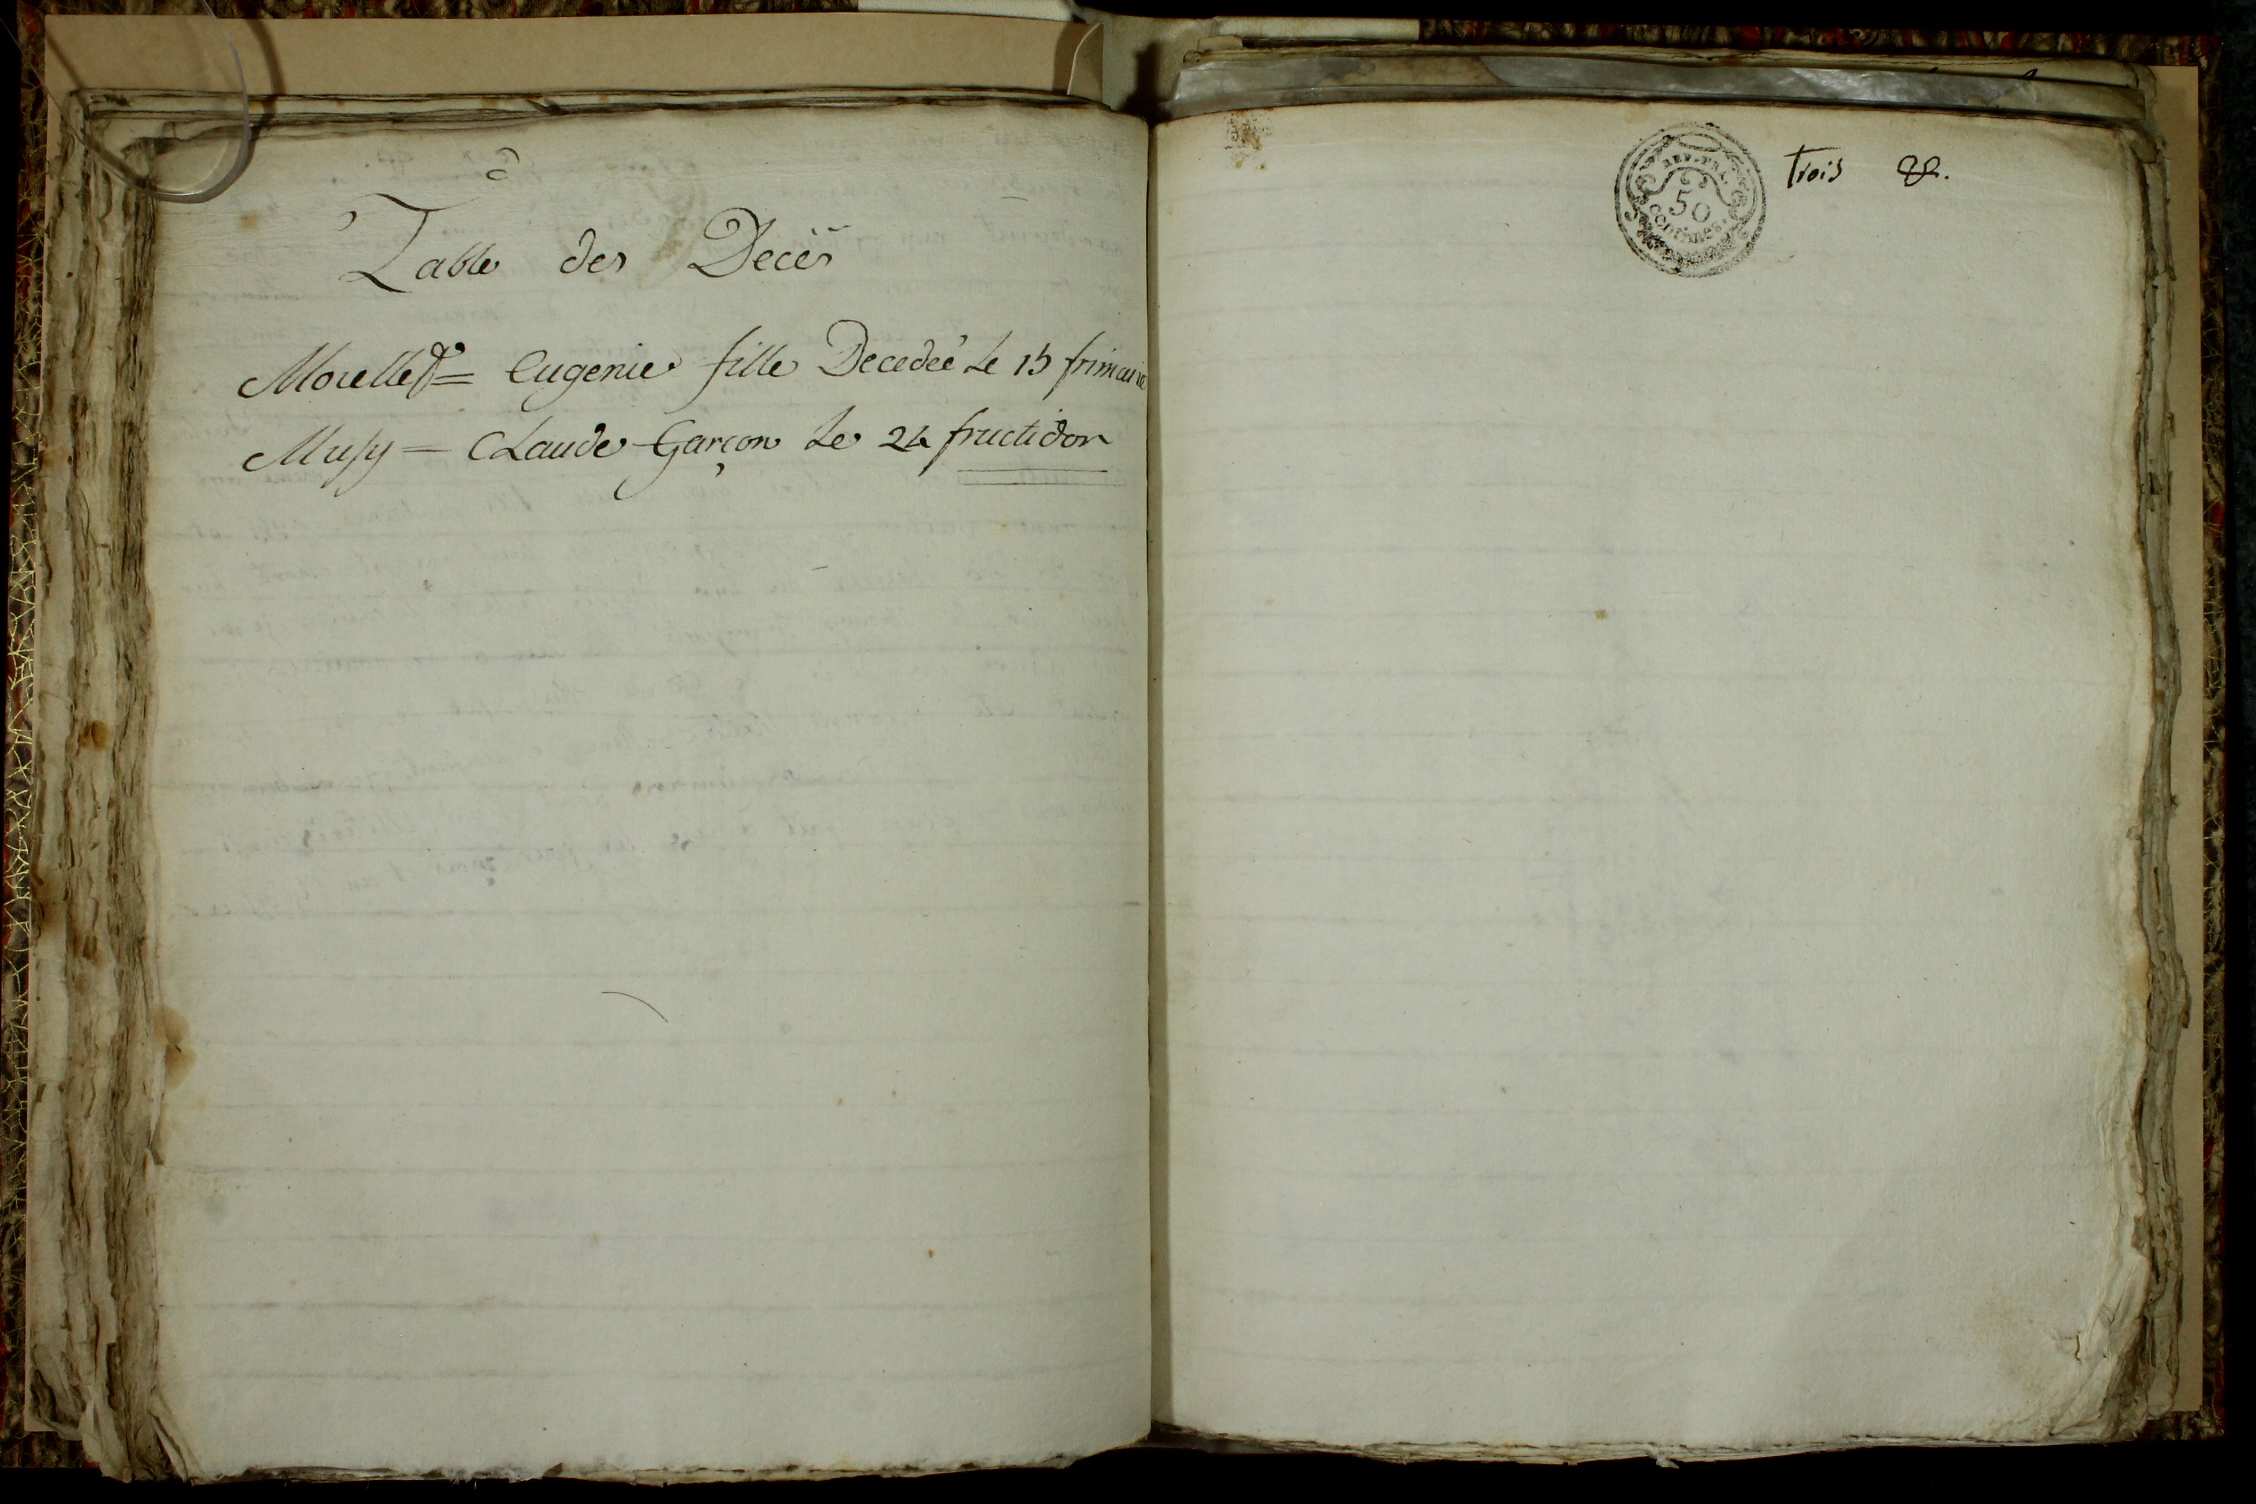 Table des Decès
Morellet = Eugenie fille Decedeé Le 15 frimaire
Musy = Claude Garçon Le 24 fructidor
REP. FRA.
50
centimes
trois